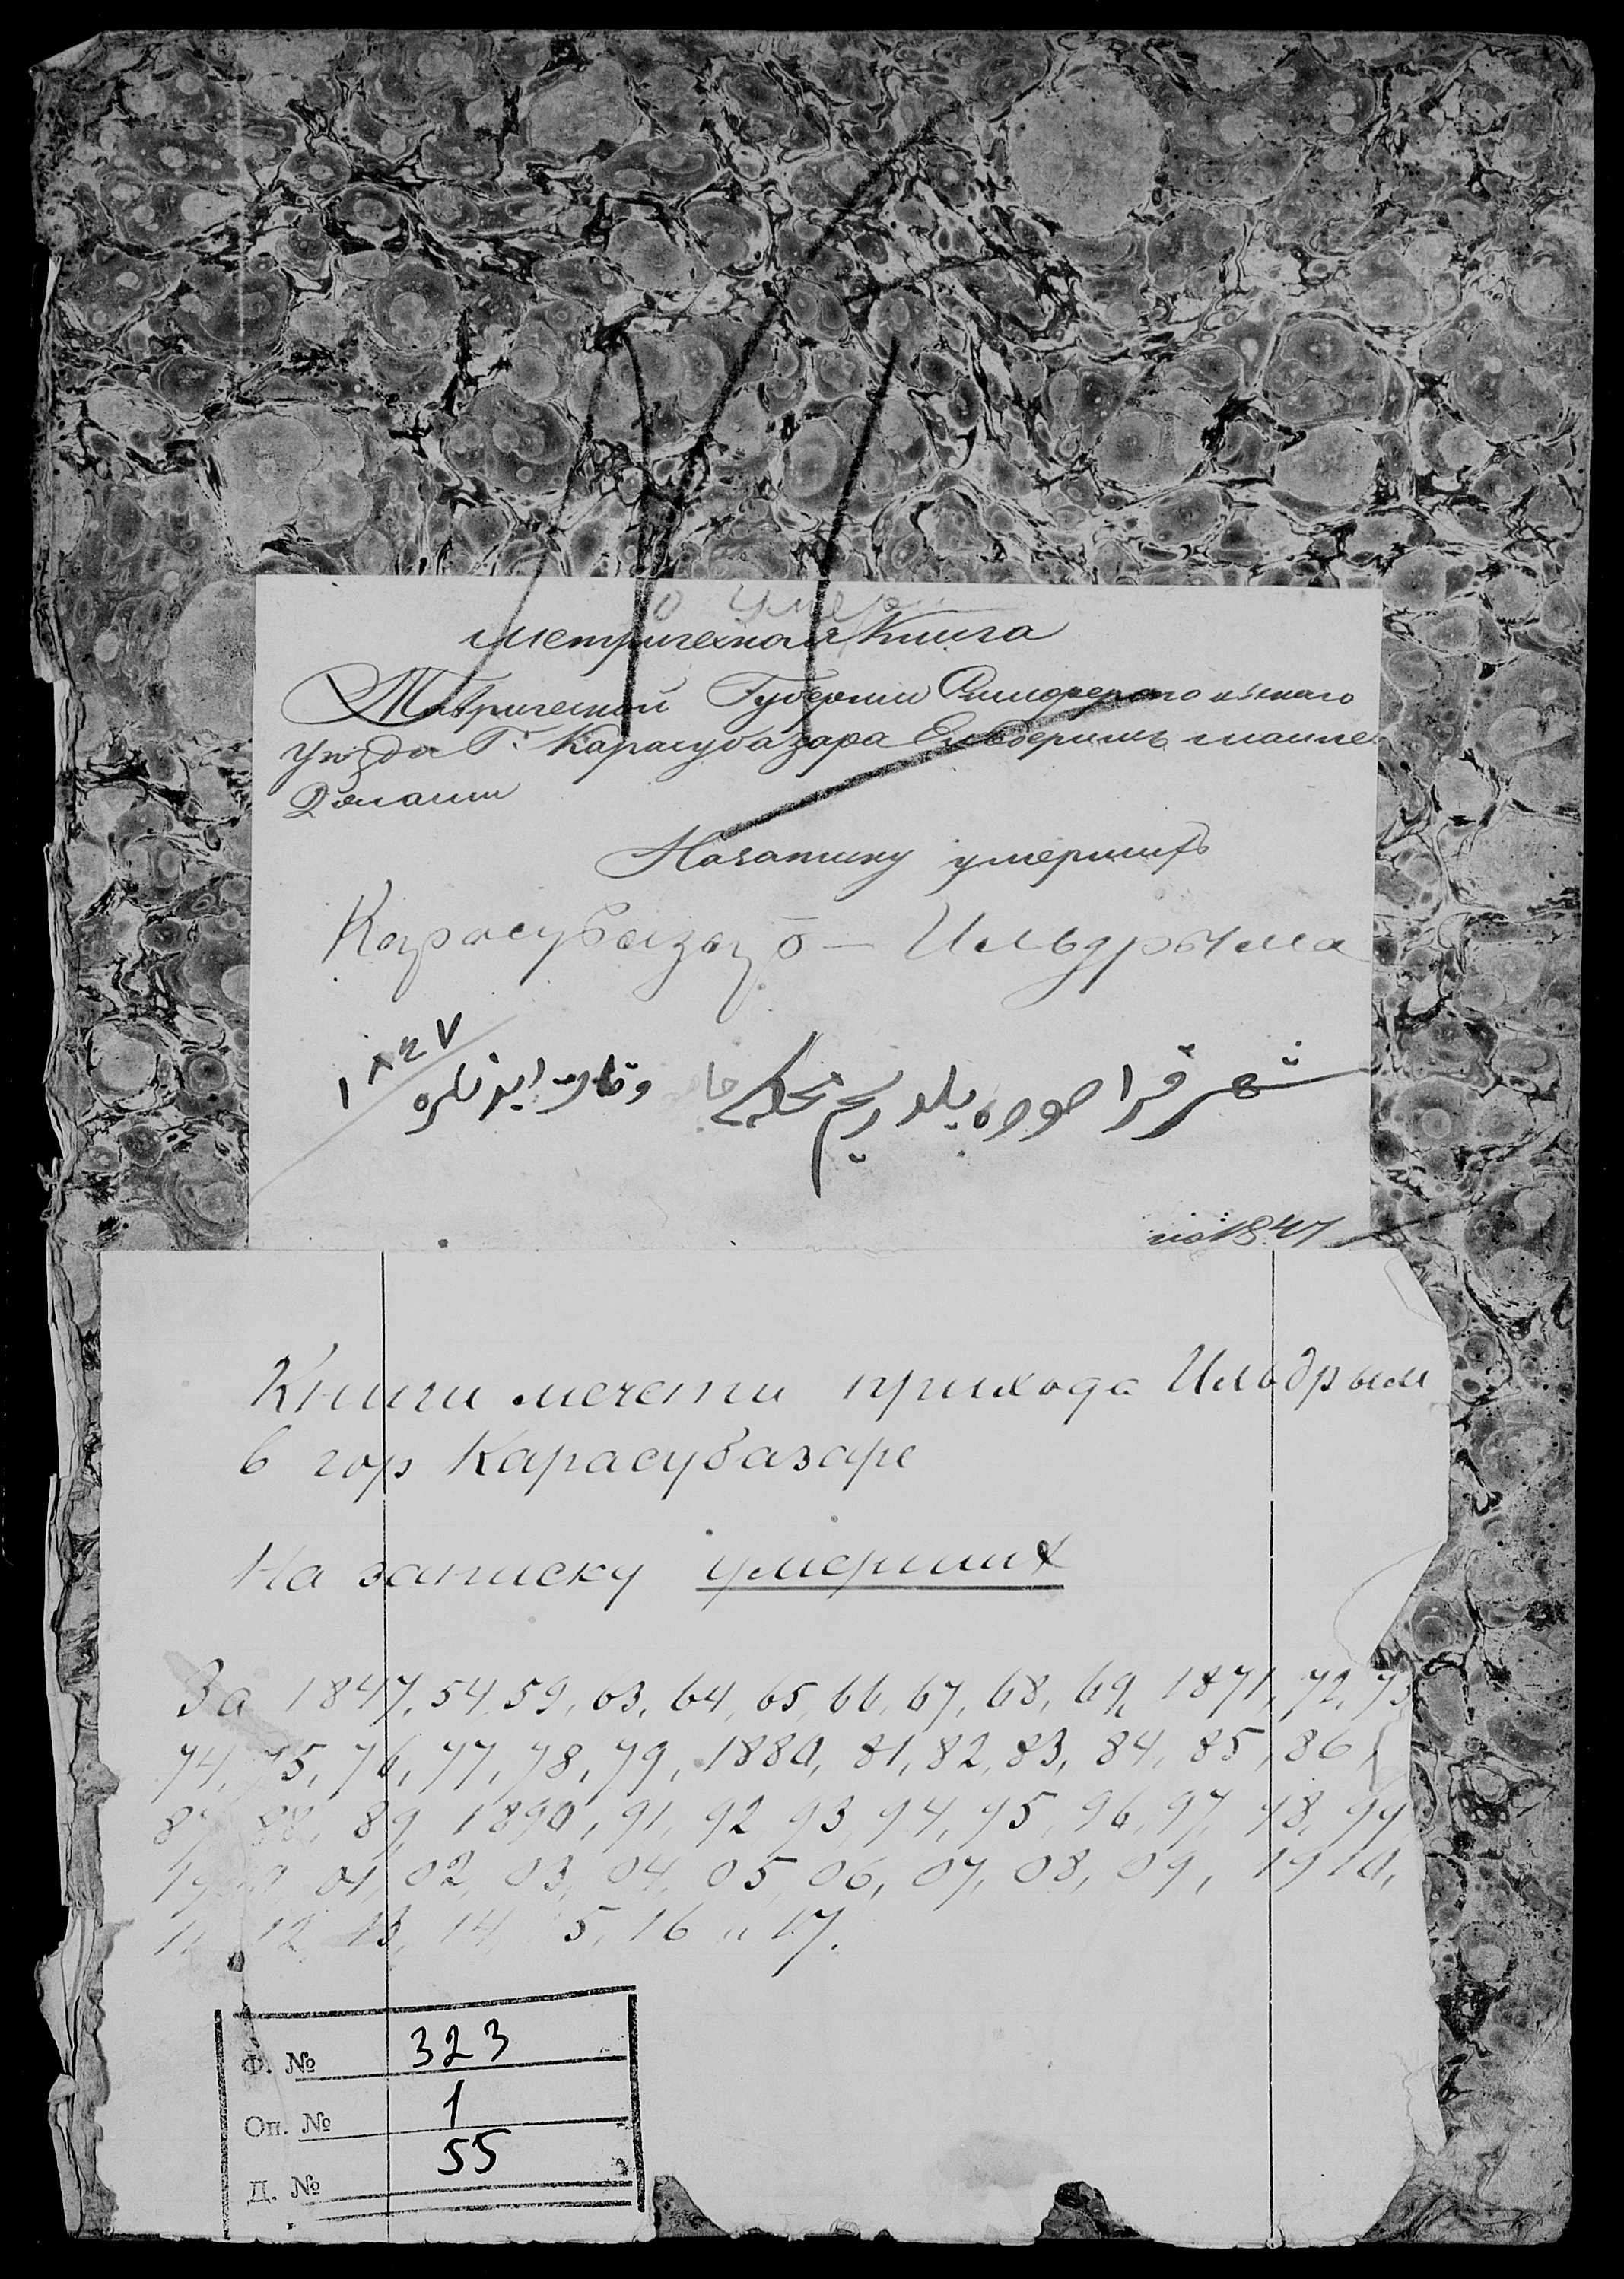 о умер
Метрическая Книга
Таврической Губернии Симферопольскаго
Уезда Г. Карасубазара
Назаписку умершихъ
Карасубазар – Ильдрыма
شهر قرا صو يلدريم محله
١٨٤٧
на 1847
Книги мечети прихода Ильдрым
в гор Карасубазаре
На записку умерших
За 1847, 54, 59, 63, 64, 65, 66, 67, 68, 69, 1871, 72, 73,
74, 75, 76, 77, 78, 79, 1880, 81, 82, 83, 84, 85, 86,
87, 88, 89, 1890, 91, 92, 93, 94, 95, 96, 97, 98, 99,
1900, 01, 02, 03, 04, 05, 06, 07, 08, 09, 1910,
11, 12, 13, 14, 15, 16 и 17.
Ф. № 323
Оп. № 1
Д. № 55